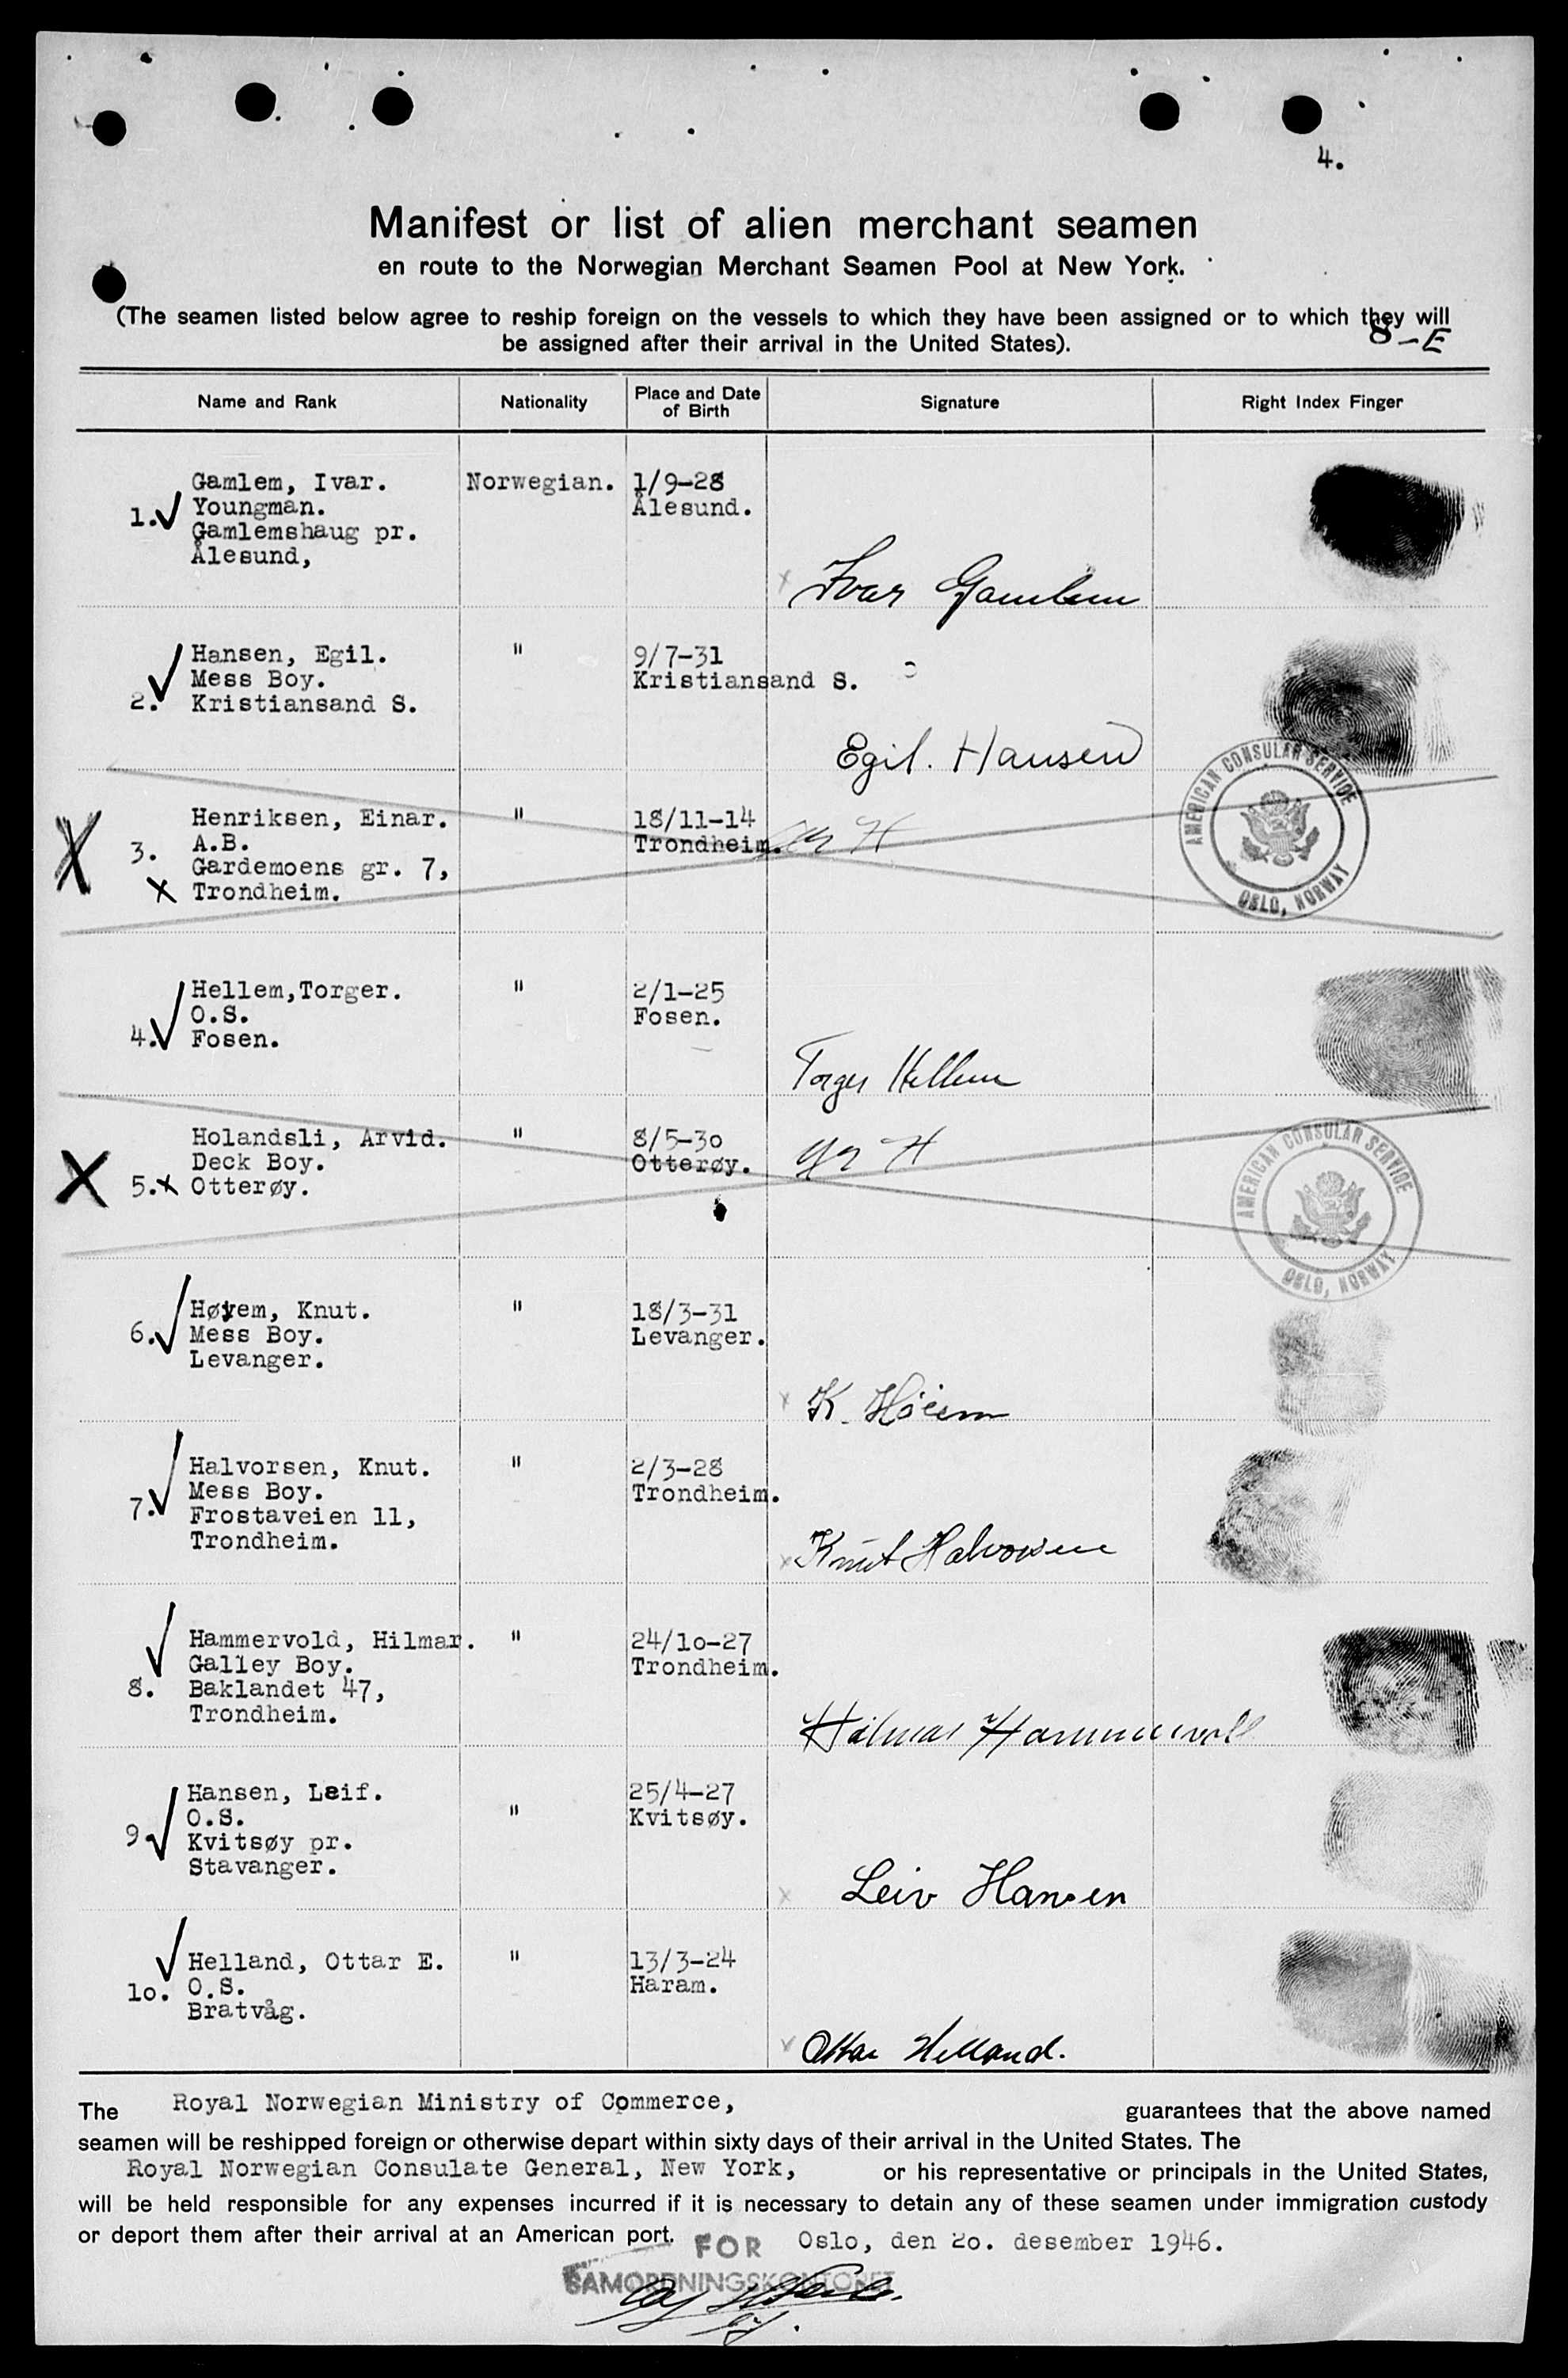 4.
Manifest or list of alien merchant seamen
en route to the Norwegian Merchant Seamen Pool at New York.
(The seamen listed below agree to reship foreign on the vessels to which they have been assigned or to which they will
be assigned after their arrival in the United States).
8-E
Name and Rank Nationality Place and Date of Birth Signature Right Index Finger
Gamlem, Ivar. Norwegian. 1/9-28
1. Youngman. Ålesund.
Gamlemshaug pr.
Ålesund,
Ivar Gamlem
Hansen, Egil. " 9/7-31
Mess Boy. Kristiansand S.
2. Kristiansand S.
Egil. Hansen
AMERICAN CONSULAR SERVICE
OSLO, NORWAY
Henriksen, Einar. " 18/11-14
X 3. A.B. Trondheim.
Gardemoens gr. 7,
x Trondheim.
Hellem,Torger. " 2/1-25
O.S. Fosen.
4. Fosen.
Torger Hellem
AMERICAN CONSULAR SERVICE
OSLO, NORWAY
Holandsli, Arvid. " 8/5-30
Deck Boy. Otterøy.
X 5.x Otterøy.
Høyem, Knut. " 18/3-31
6. Mess Boy. Levanger.
Levanger.
x K. Höiem
Halvorsen, Knut. " 2/3-28
7. Mess Boy. Trondheim.
Frostaveien 11,
Trondheim.
x Knut Halvorsen
Hammervold, Hilmar. " 24/10-27
Galley Boy. Trondheim.
8. Baklandet 47,
Trondheim.
Hilmar Hammervold
Hansen, Leif. 25/4-27
9. O.S. " Kvitsøy.
Kvitsøy pr.
Stavanger.
x Leiv Hansen
Helland, Ottar E. " 13/3-24
10. O.S. Haram.
Bratvåg.
Ottar Helland.
The Royal Norwegian Ministry of Commerce, guarantees that the above named
seamen will be reshipped foreign or otherwise depart within sixty days of their arrival in the United States. The
Royal Norwegian Consulate General, New York, or his representative or principals in the United States,
will be held responsible for any expenses incurred if it is necessary to detain any of these seamen under immigration custody
or deport them after their arrival at an American port. FOR Oslo, den 20. desember 1946.
SAMORDNINGSKONTORET